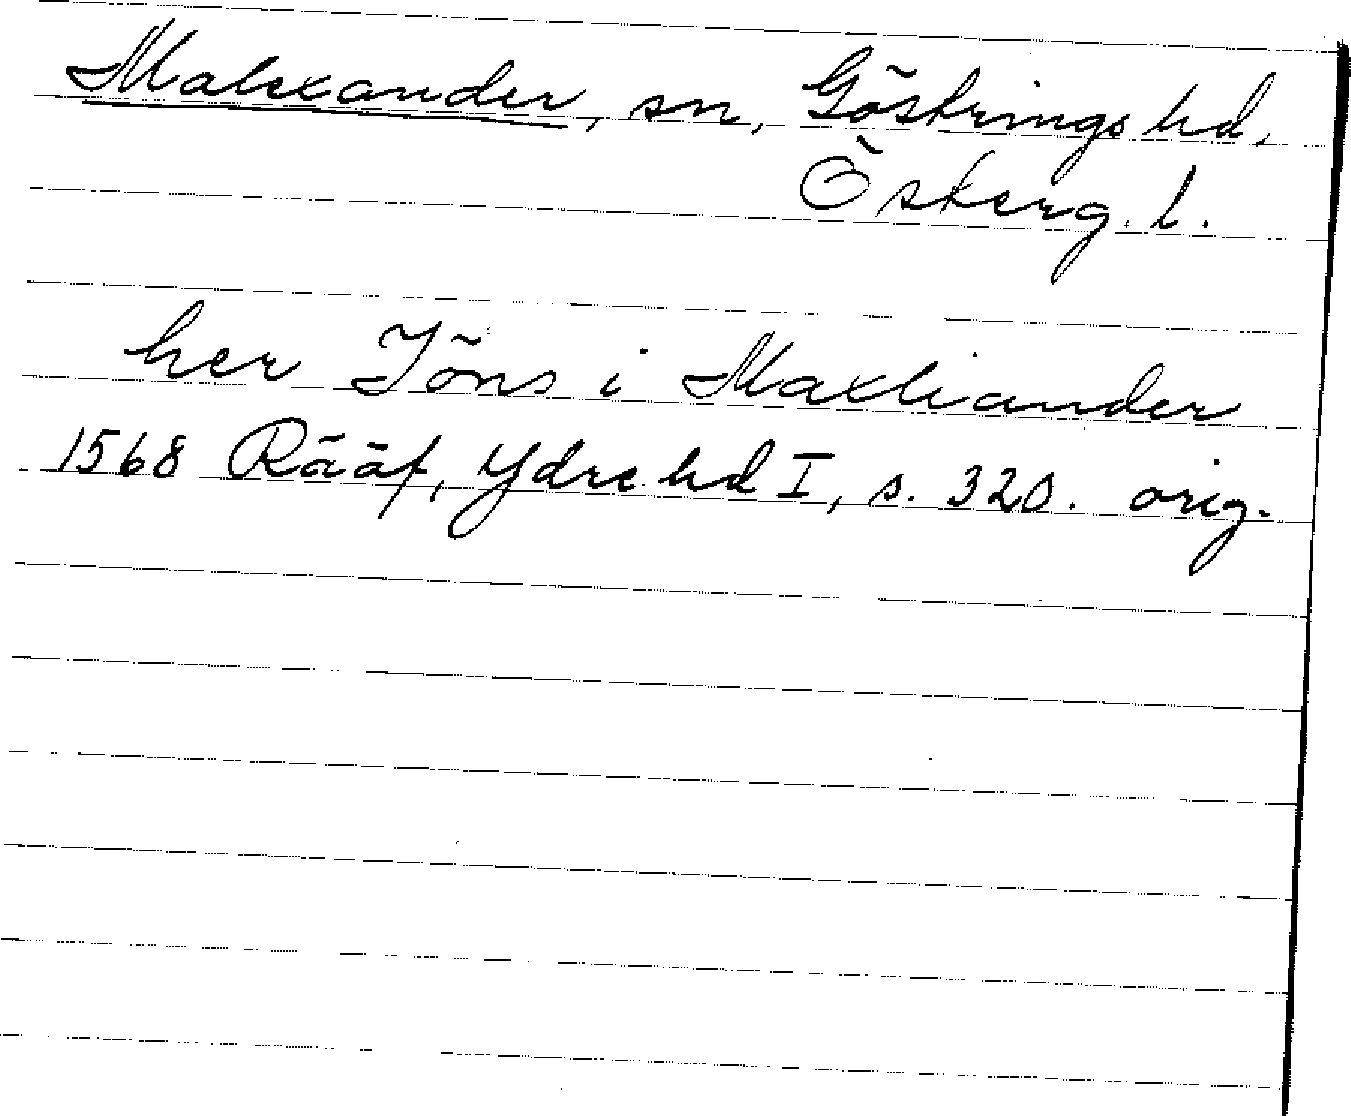 Malexander, sn, Göstrings hd,
Österg. l.
her Jöns i Maxliander
1568 Rääf, Ydre hd I, s. 320. orig.